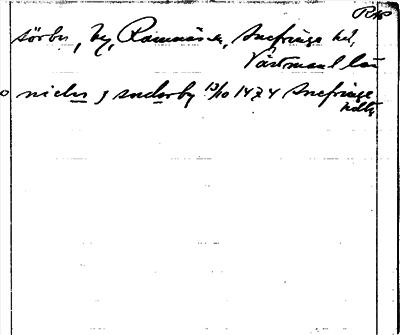 RAP
Sörby, by, Ramnäs sn, Snefringe hd,
Västmanl län
o niclis j suderby 13/10 1474 Snefringe
hdtg